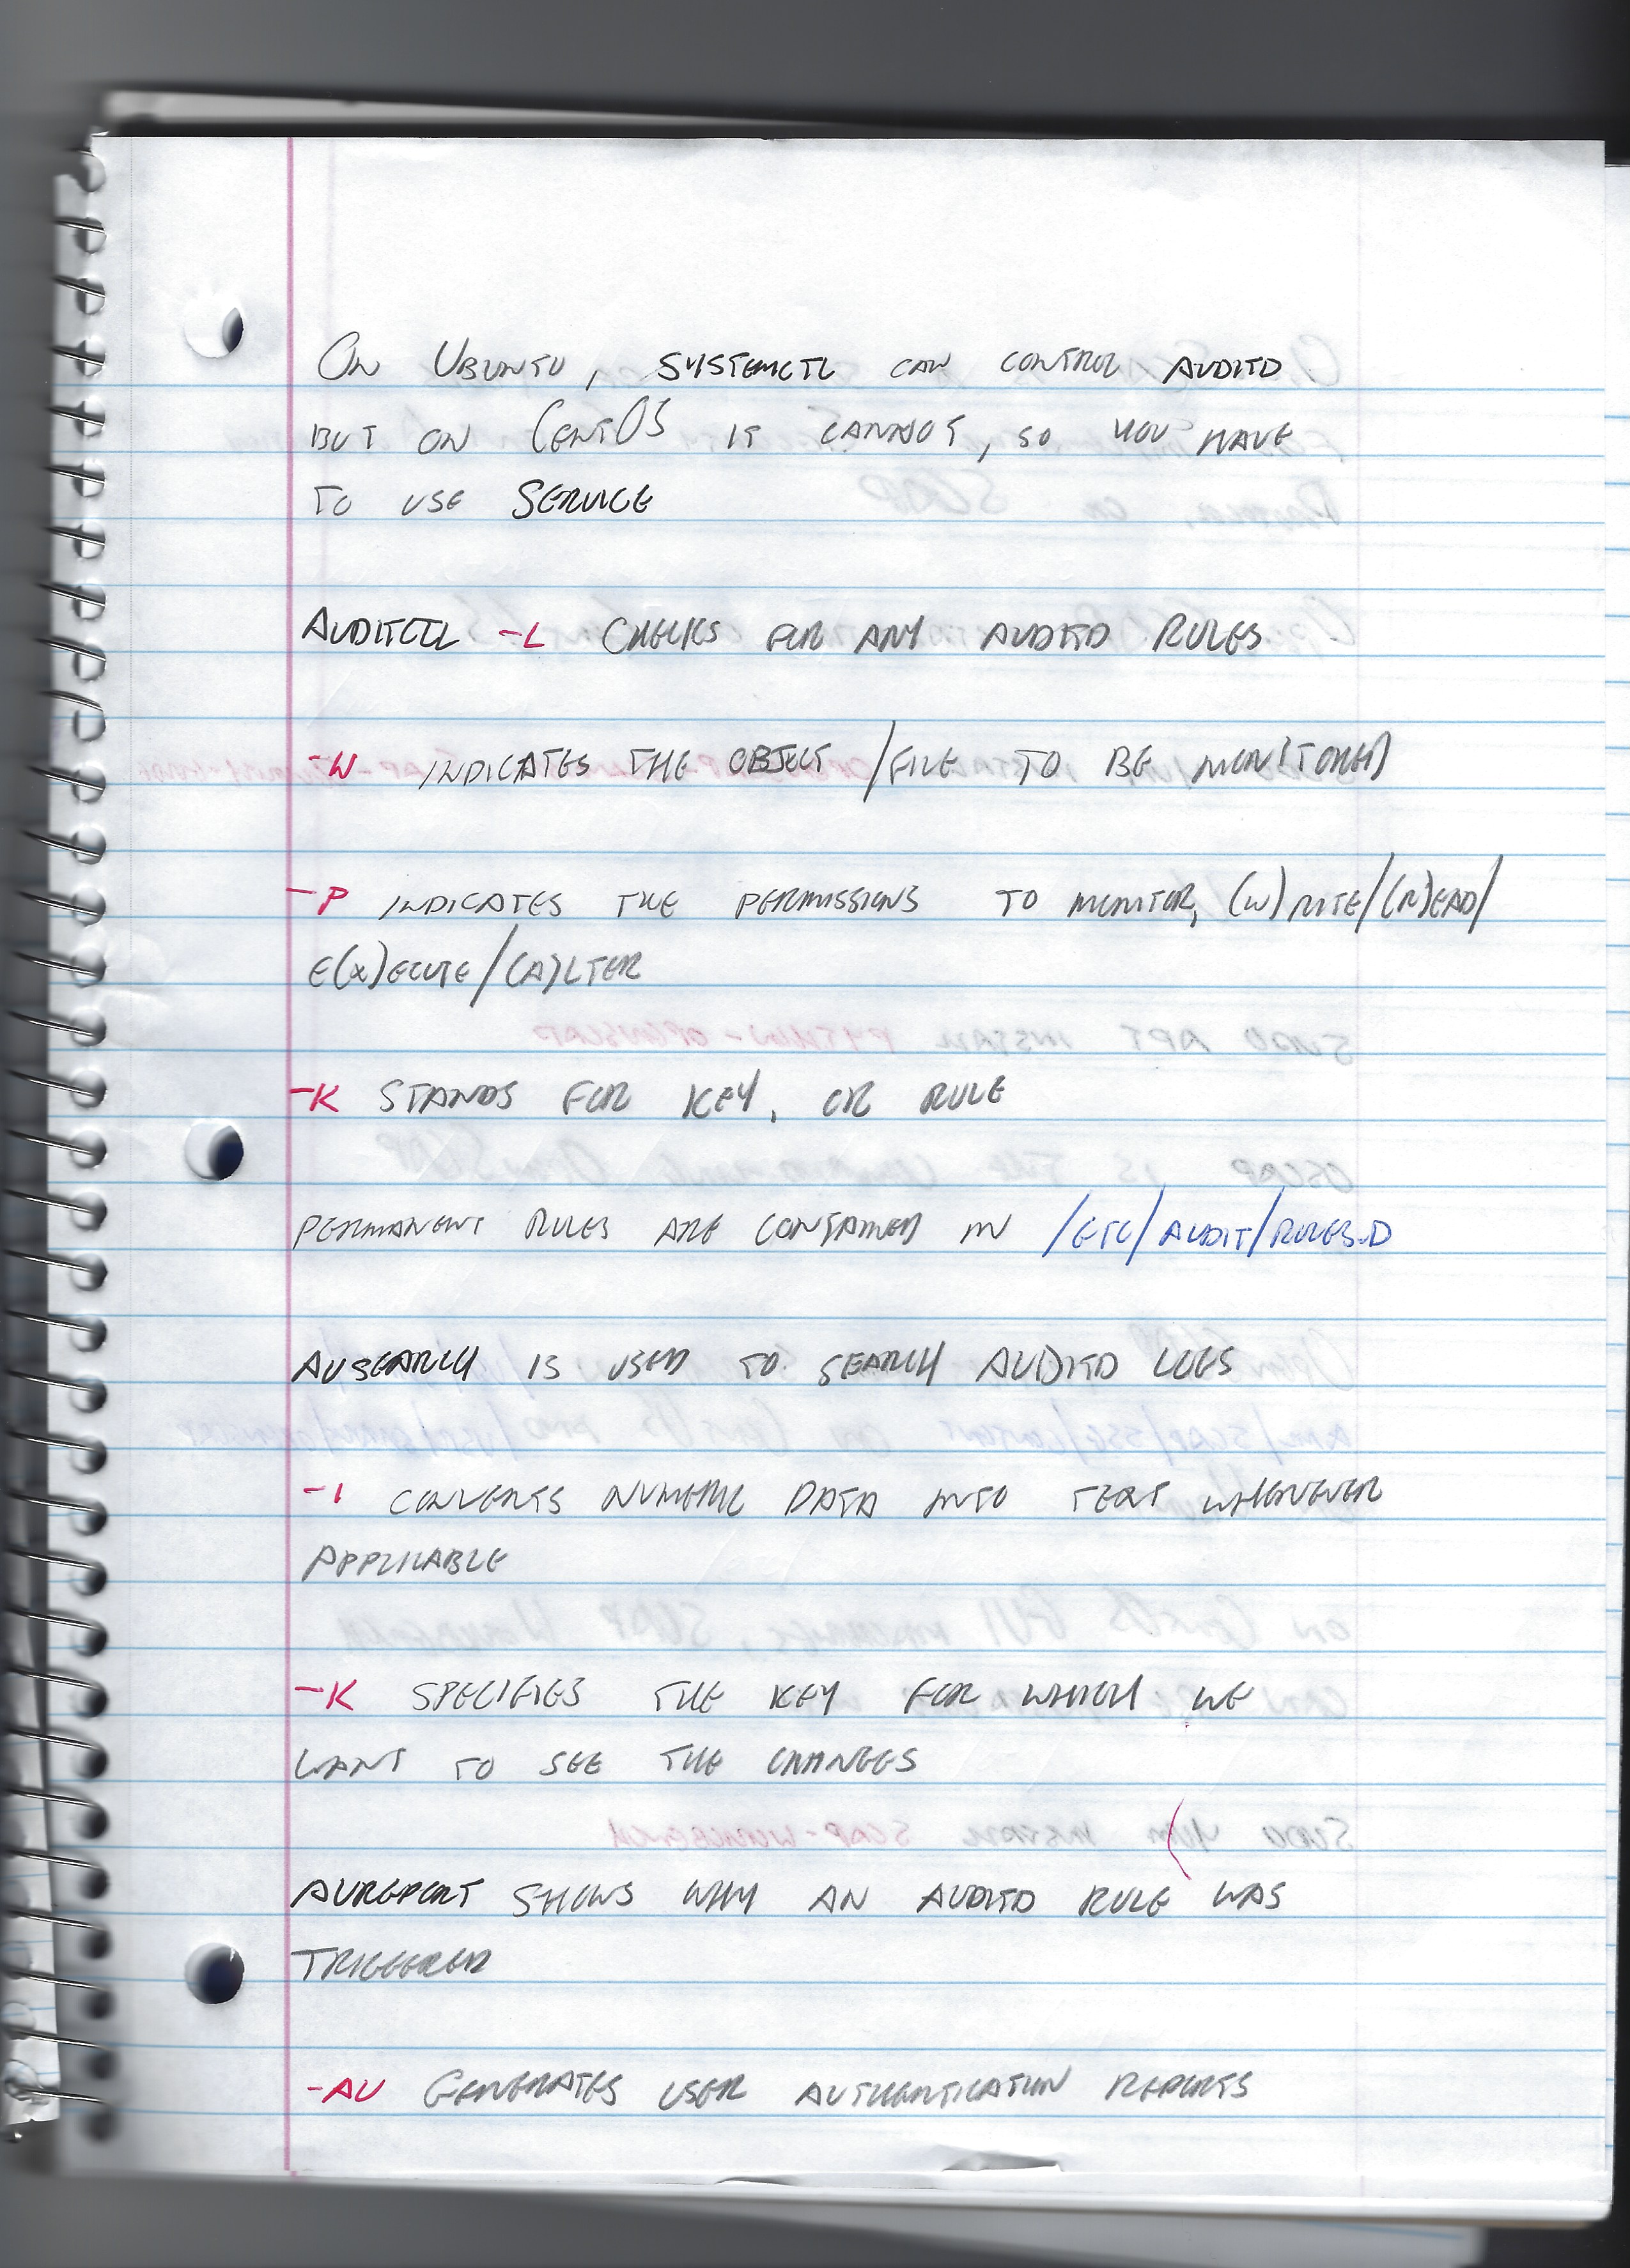 On Ubuntu, systemctl can control auditd
but on CentOS it cannot, so you have
to use Service
Auditctl -L Checks for any auditd rules
-w indicates the object/file to be monitored
-p indicates the permissions to monitor, (w)rite/(r)ead/
e(x)ecute/(a)lter
-k stands for key, or rule
permanent rules are contained in /etc/audit/rules.d
ausearch is used to search auditd logs
-i converts numeric data into text whenever
applicable
-k specifies the key for which we
want to see the changes
aureport shows why an auditd rule was
triggered
-au Generates user authentication reports